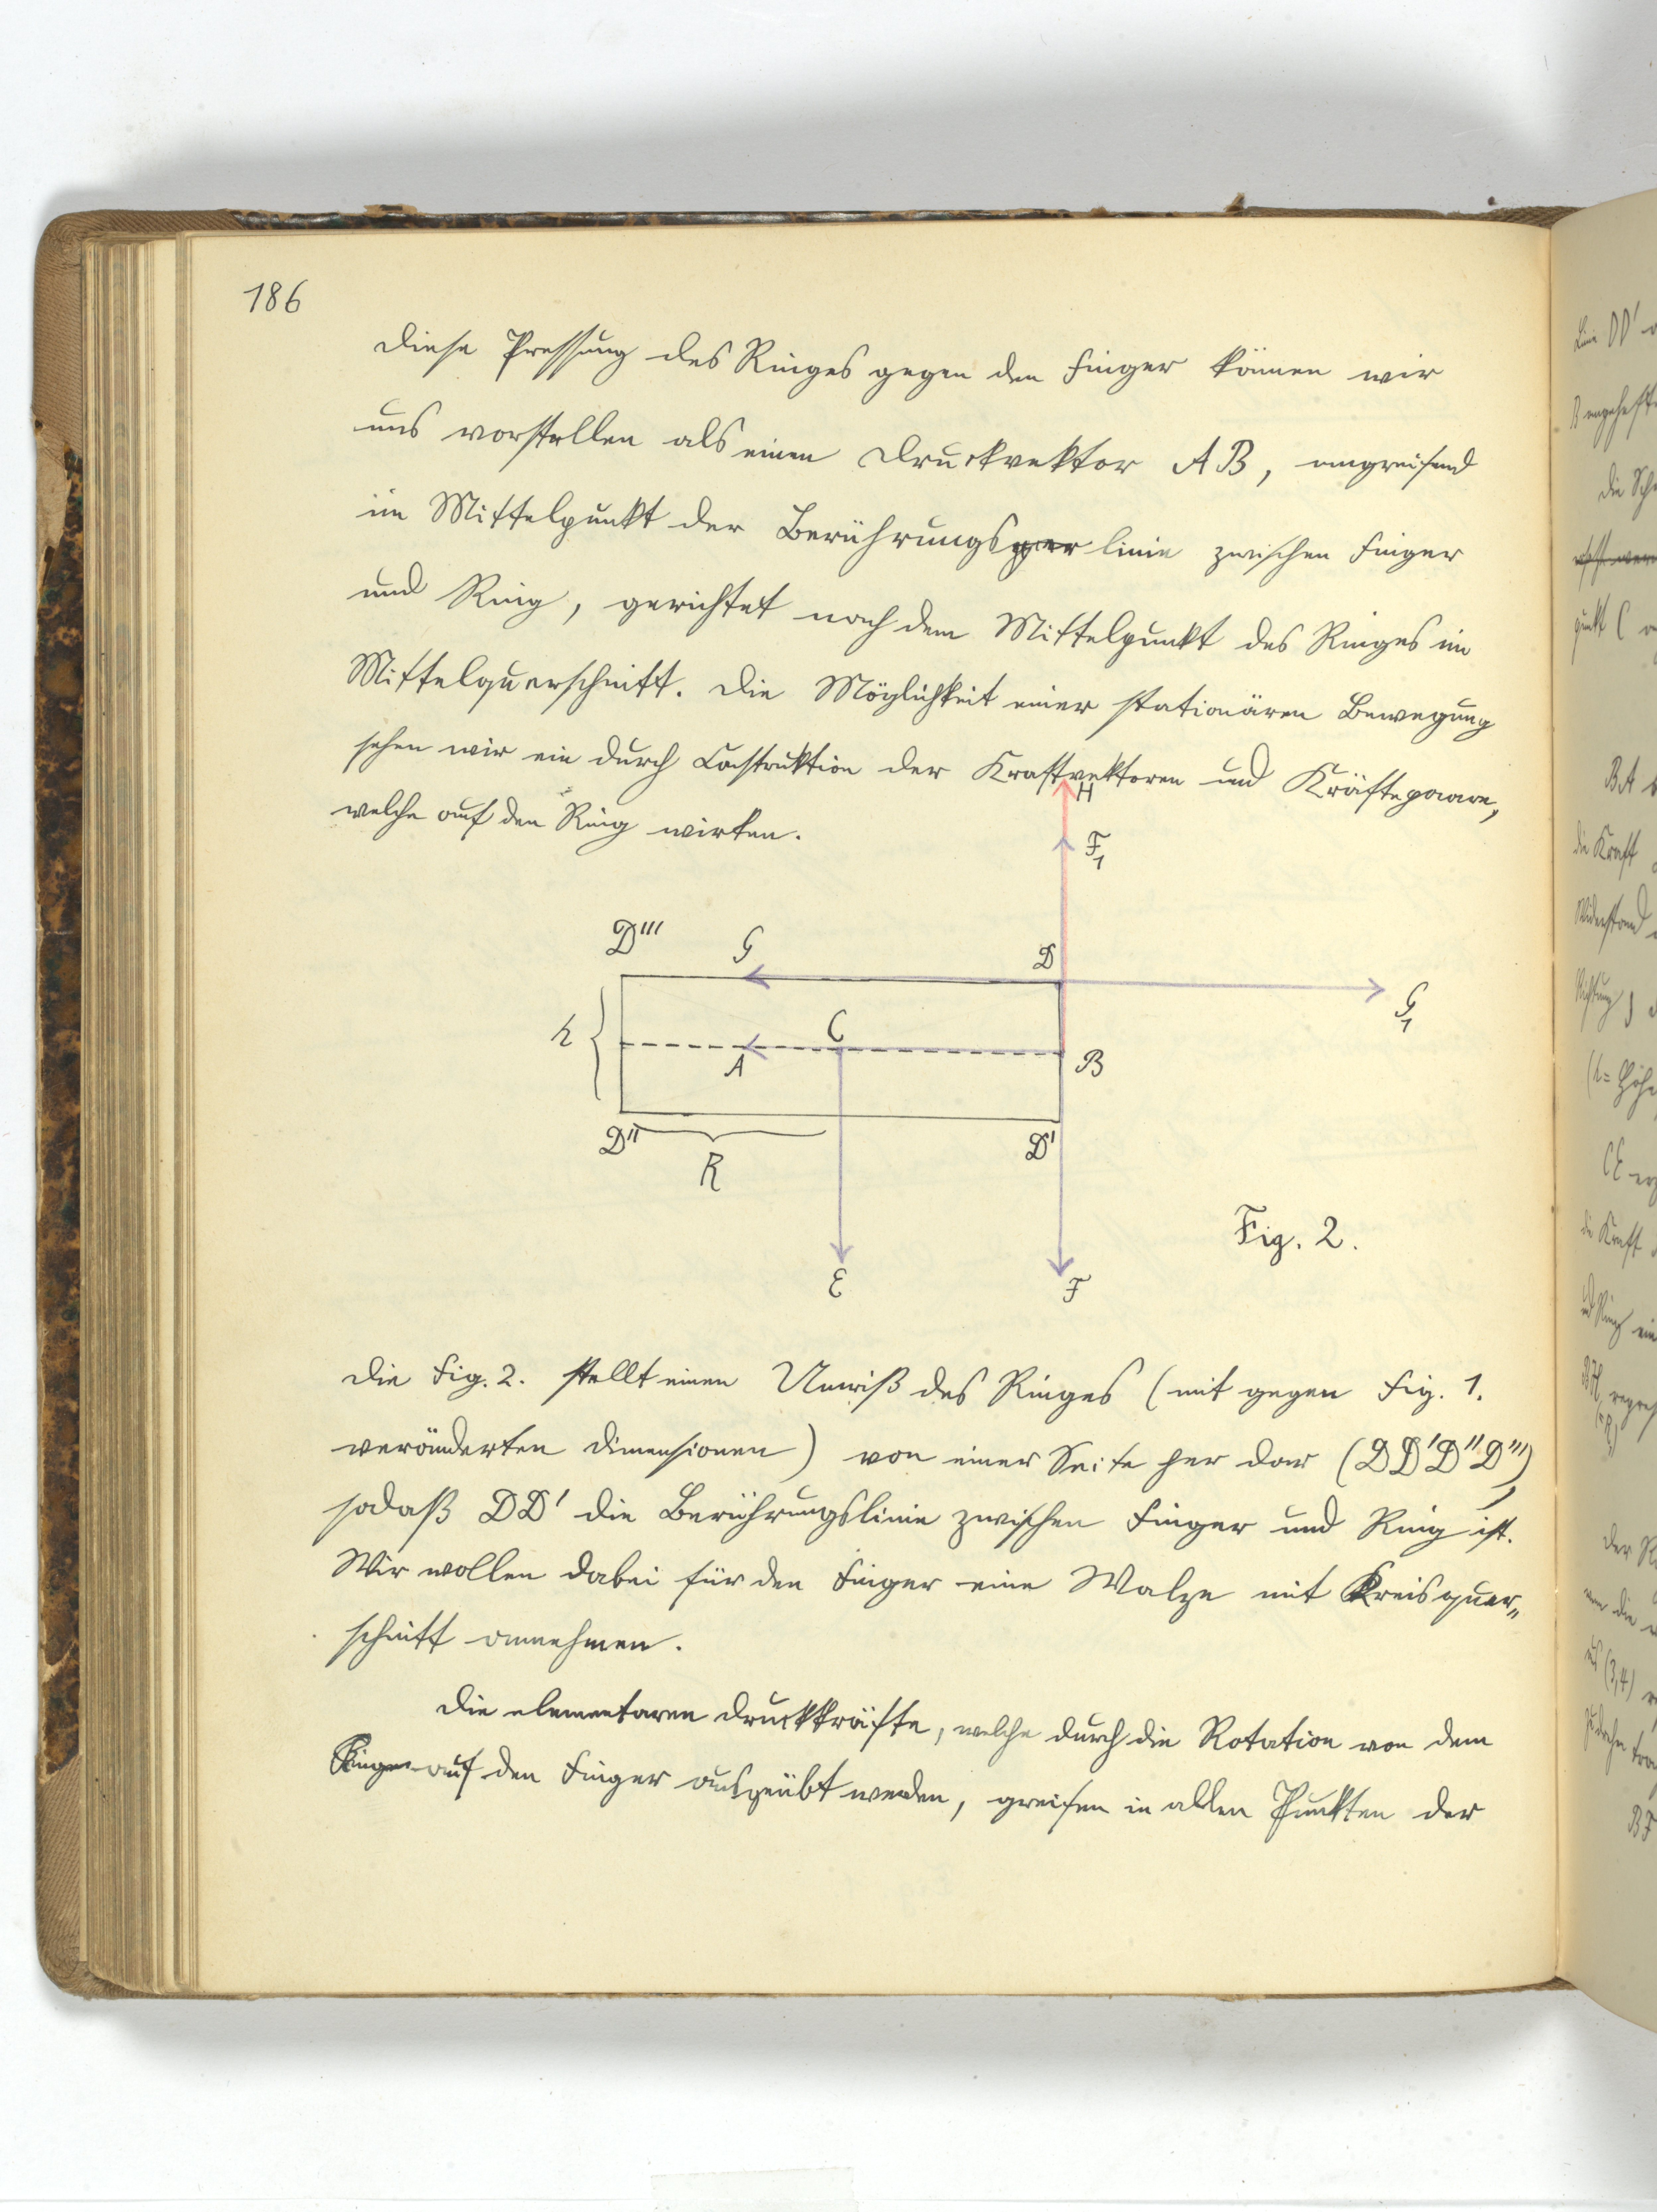 186
Diese Pressung des Ringes gegen den Finger können wir
uns vorstellen als einen Druckvektor AB, angreifend
im Mittelpunkt der Berührungs linie zwischen Finger
und Ring, gerichtet nach dem Mittelpunkt des Ringes im
Mittelquerschnitt. Die Möglichkeit einer stationären Bewegung
sehen wir ein durch Constrùktion der Kraftvektoren und Kräftepaare,
welche auf den Ring wirken.
H
F₁
D''' G D
G₁
h C
A B
D'' D'
R
Fig. 2.
E F
Die Fig. 2. stellt einen Umriß des Ringes (mit gegen Fig. 1.
veränderten Dimensionen) von einer Seite her dar (DD'D''D'''),
sodaß DD' die Berührungslinie zwischen Finger und Ring ist.
Wir wollen dabei für den Finger eine Walze mit Kreisquer„
schnitt annehmen.
Die elementaren Druckkräfte, welche durch die Rotation von dem
Ringe auf den Finger ausgeübt werden, greifen in allen Punkten der